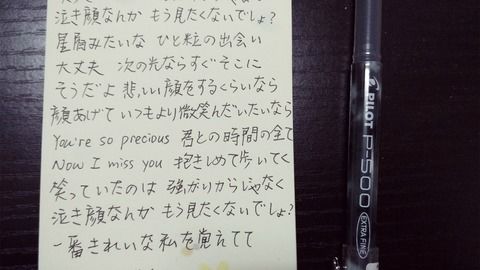 泣き顔なんか もう見たくないでしょ?
星屑みたいな ひと粒の出会い
大丈夫 次の光ならすぐそこに
そうだよ 悲しい顔をするくらいなら
顔あげて いつもより微笑んだいたいなら
You're so precious 君との時間の全て
Now I miss you 抱きしめて歩いてく
笑っていたのは 強がりからじゃなく
泣き顔なんか もう見たくないでしょ?
一番きれいな私を覚えてて
PILOT P-500
EXTRA FINE